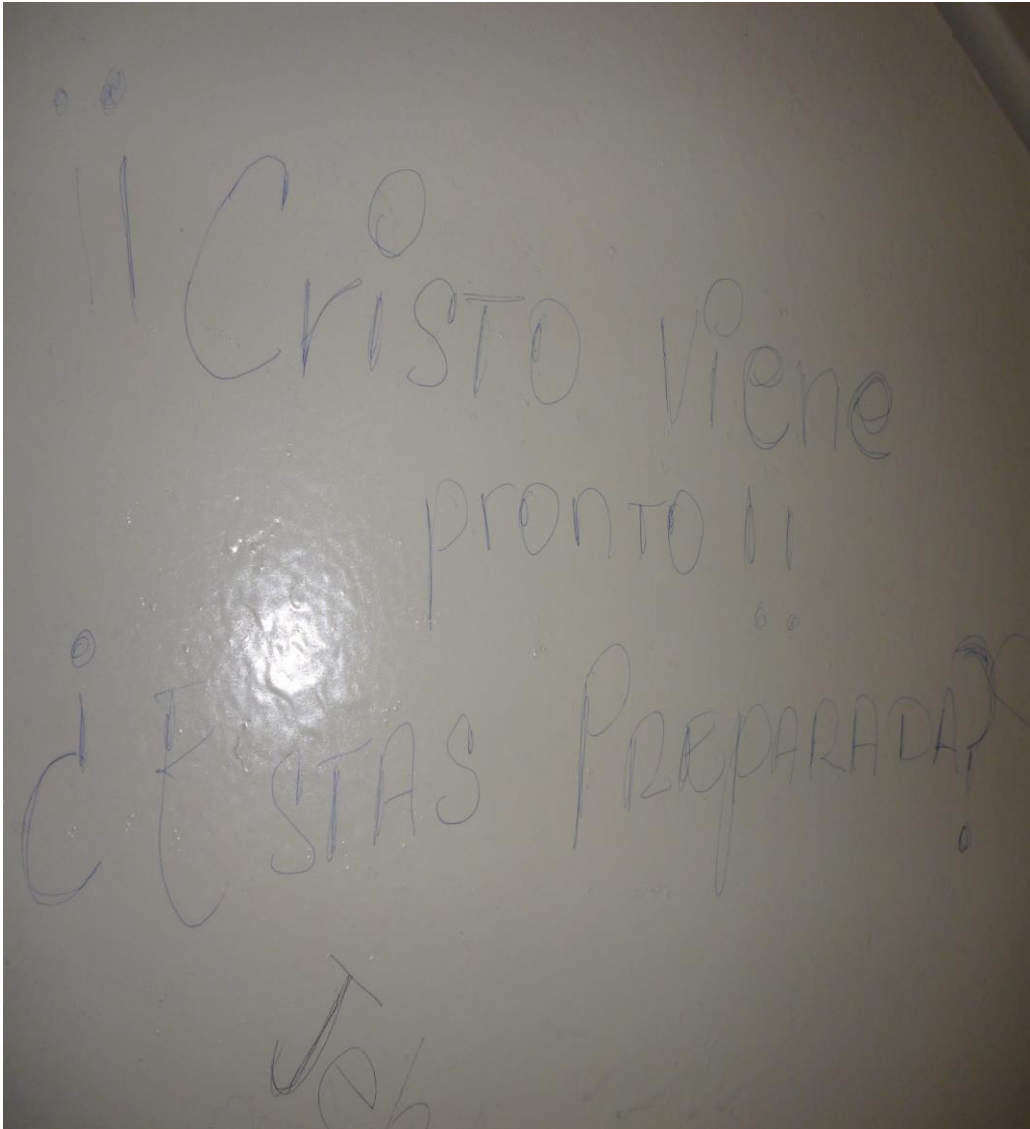 ¡¡Cristo viene
pronto!!
¿Estas Preparada?